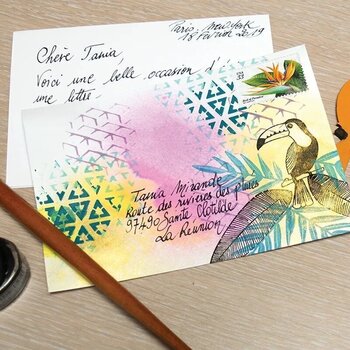 Paris - New-York
18 Février 2019
Chère Tania,
Voici une belle occasion d'é
une lettre
Tania Mirande
Route des rivières des pluies
97490 Sainte Clotilde
La Réunion